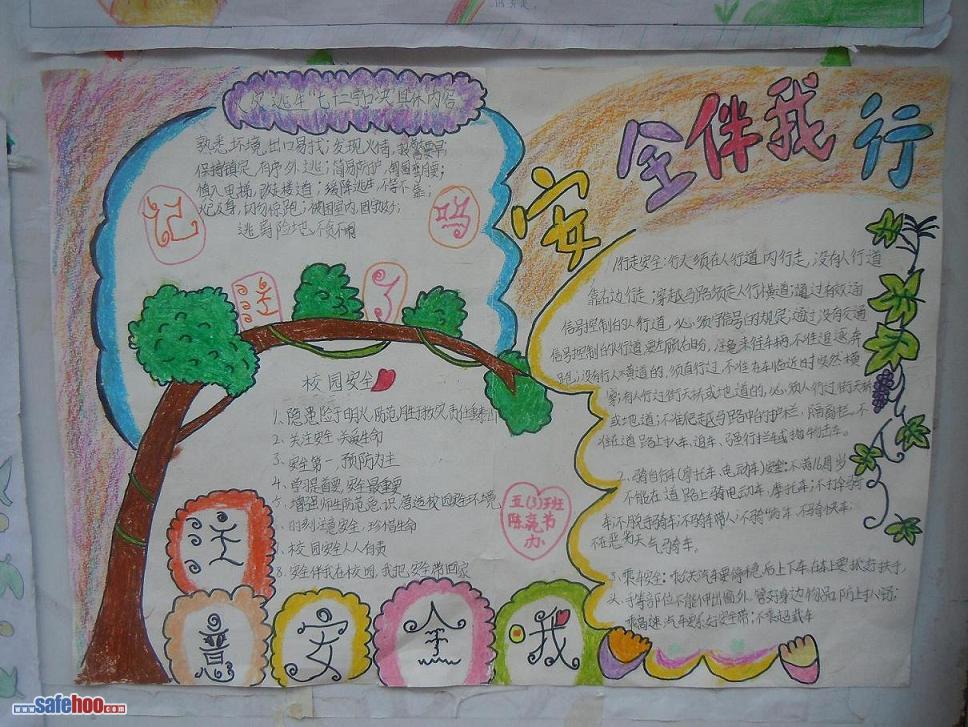 安全伴我行
火灾逃生"七十二字口诀"具体内容
熟悉环境，出口易找；发现火情，报警要早；
保持镇定，有序外逃；简易防护，匍匐弯腰；
慎入电梯，改走楼道；缓降逃生，不等不靠；
火已及身，切勿惊跑；被困室内，固守求救；
逃离险地，不
记
吗
校园安全
1、隐患险于明火，防范胜于救灾，责任重于
2、关注安全 关爱生命
3、安全第一，预防为主
4、掌握首要，安全最重要
5、增强师生防范意识，营造校园安全环境
6、时刻注意安全，珍惜生命
7、校园安全人人有责
8、安全伴我在校园，我把安全带回家
五(3)班
陈
办
意
安
全
我
1、行走安全：行人须在人行道内行走，没有人行道
靠右边行走；穿越马路须走人行横道；通过有交通
信号控制的人行道，必须守信号的规定；通过没有交通
信号控制的人行道要左顾右盼，注意来往车辆，不准追逐奔
跑；没有人行横道的，须直行通过，不准在车临近时突然横
穿；有人行过街天桥或地道的，必须走人行过街天桥
或地道；不准爬越马路中的护栏、隔离栏，不
准在道路上扒车、追车、强行拦车或抛物击车。
2、骑自行车（摩托车、电动车）安全：不满16周岁
不能在道路上骑电动车、摩托车；不打伞骑
车；不脱手骑车；不骑车带人；不骑"病"车；不骑快车；
不在恶劣天气骑车。
3、乘车安全：乘公共汽车要停稳后上下车，在车上要抓紧扶手，
头、手等部位不能伸出窗外，管好身边物品，防止扒窃；
乘高速汽车要系好安全带；不乘超载车
www.safehoo.com